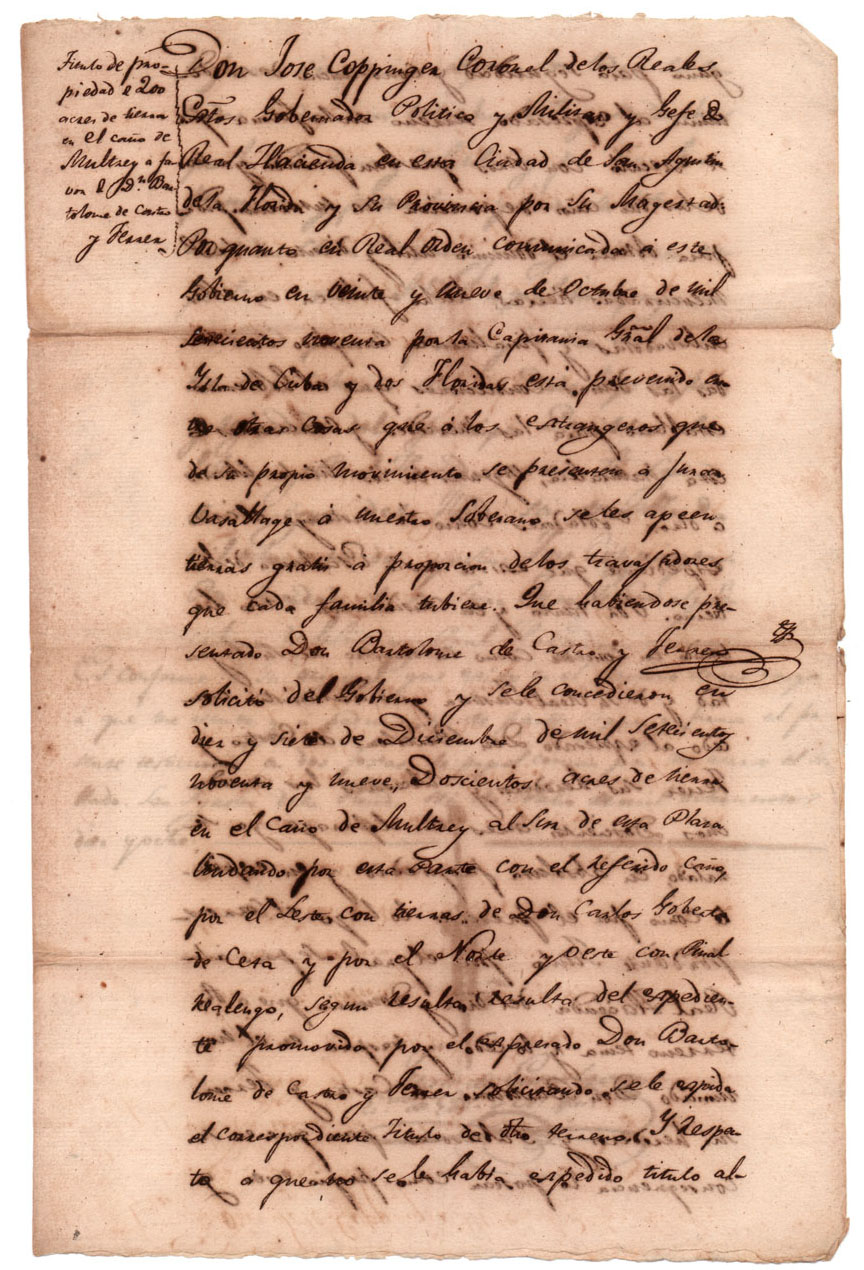 Titulo de pro-
piedad de 200
acres de tierra
en el caño de
Multrey a fa
vor de Dn. Bar
tolome de Castro
y Ferrer
Don Jose Coppinger Coronel de los Reales
Extos. Gobernador Politico y Militar y Gefe de
Real Hacienda en esta Ciudad de San Agustin
de la Florida y su Provincia por Su Magestad
Por quanto en Real orden comunicada a este
Gobierno en veinte y nueve de Octubre de mil
setecientos noventa por la Capitania Gñal de la
Ysla de Cuba y dos Floridas está prevenido en
tre otras cosas que á los estrangeros que
de su propio movimiento se presenten á jurar
vasallage á nuestro Soberano se les apeen
tierras gratis á proporcion de los travajadores
que cada familia tubiere. Que habiendose pre-
sentado Don Bartolome de Castro y Ferrer
solicitó del Gobierno y se le concedieron en
diez y siete de Diciembre de mil setecientos
noventa y nueve, Doscientos acres de tierra
en el Caño de Multrey al Sur de esta Plaza
lindando por esta Parte con el referido Caño,
por el Leste con tierras de Don Carlos Goberto
de Ceta y por el Norte y oeste con Pinal
realengo, segun resulta resulta del expedien-
te promovido por el expresado Don Barto-
lome de Castro y Ferrer solicitando se le expida
el correspondiente Titulo de dho terreno. Y respec-
to á que no se le habia expedido titulo al-